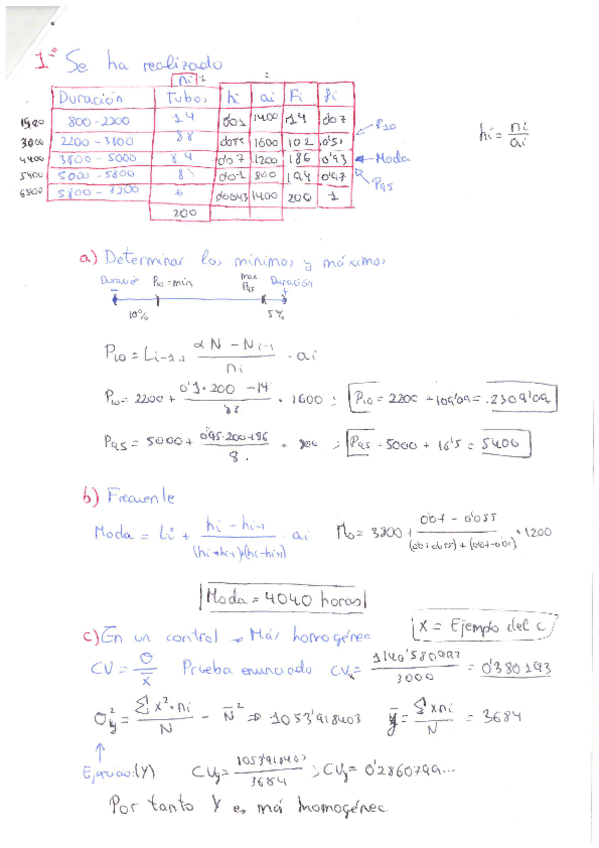 1º Se ha realizado
ni
Duración Tubos hi ai Fi fi
1500 800-2200 14 0'01 1400 14 0'07
3000 2200-3800 88 0'055 1600 102 0'51 P10
4400 3800-5000 84 0'07 1200 186 0'93 Moda
5400 5000-5800 8 0'01 800 194 0'97 P95
6500 5800-7200 6 0'0043 1400 200 1
200
hi = ni / ai
a) Determinar los mínimos y máximos
Duración P10=min max P95 Duración
10% 5%
P10 = Li-1 + (αN - Ni-1) / ni · ai
P10 = 2200 + (0'1·200 - 14) / 88 · 1600 ; P10 = 2200 + 109'09 = 2309'09
P95 = 5000 + / 8 · 800 ; P95 = 5000 + = 5400
b) Frecuente
Moda = Li + (hi - hi-1) / · ai Mo = 3800 + (0'07 - 0'055) / · 1200
Moda = 4040 horas
c) En un control → Más homogéneo X = Ejemplo del c
CV = σ / x̄ Prueba enunciado CVx = / 3000 = 0'380193
σy² = Σx²·ni / N - N̄² ⇒ 1053'918403 ȳ = Σxni / N = 3684
Ejercicio (Y) CVy = 1053'918403 / 3684 ; CVy = 0'2860799...
Por tanto Y es más homogéneo.